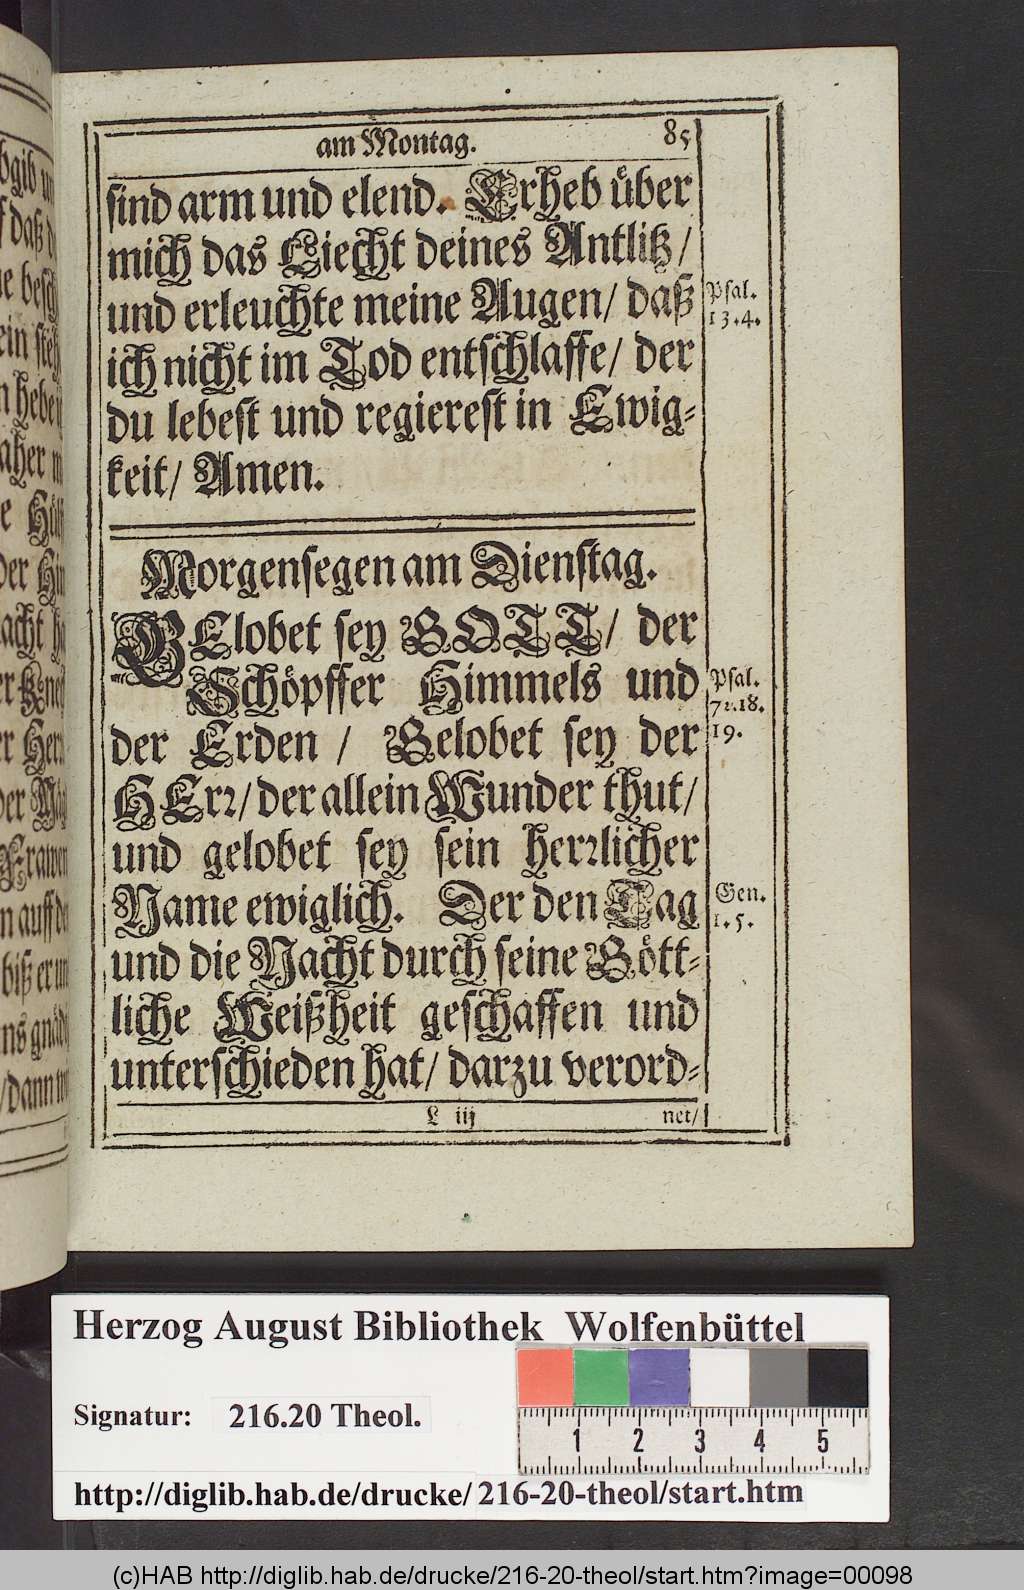 am Montag. 85
sind arm und elend. Erheb über
mich das Liecht deines Antlitz/
und erleuchte meine Augen/ daß
ich nicht im Tod entschlaffe/ der
du lebest und regierest in Ewig-
keit/ Amen.
Psal.
13.4.
Morgensegen am Dienstag.
GElobet sey GOTT/ der
Schöpffer Himmels und
der Erden / Gelobet sey der
HErr/ der allein Wunder thut/
und gelobet sey sein herrlicher
Name ewiglich. Der den Tag
und die Nacht durch seine Gött-
liche Weißheit geschaffen und
unterschieden hat/ darzu verord-
Psal.
72.18.
19.
Gen.
1.5.
L iij net/
Herzog August Bibliothek Wolfenbüttel
Signatur: 216.20 Theol.
1 2 3 4 5
http://diglib.hab.de/drucke/216-20-theol/start.htm
(c)HAB http://diglib.hab.de/drucke/216-20-theol/start.htm?image=00098